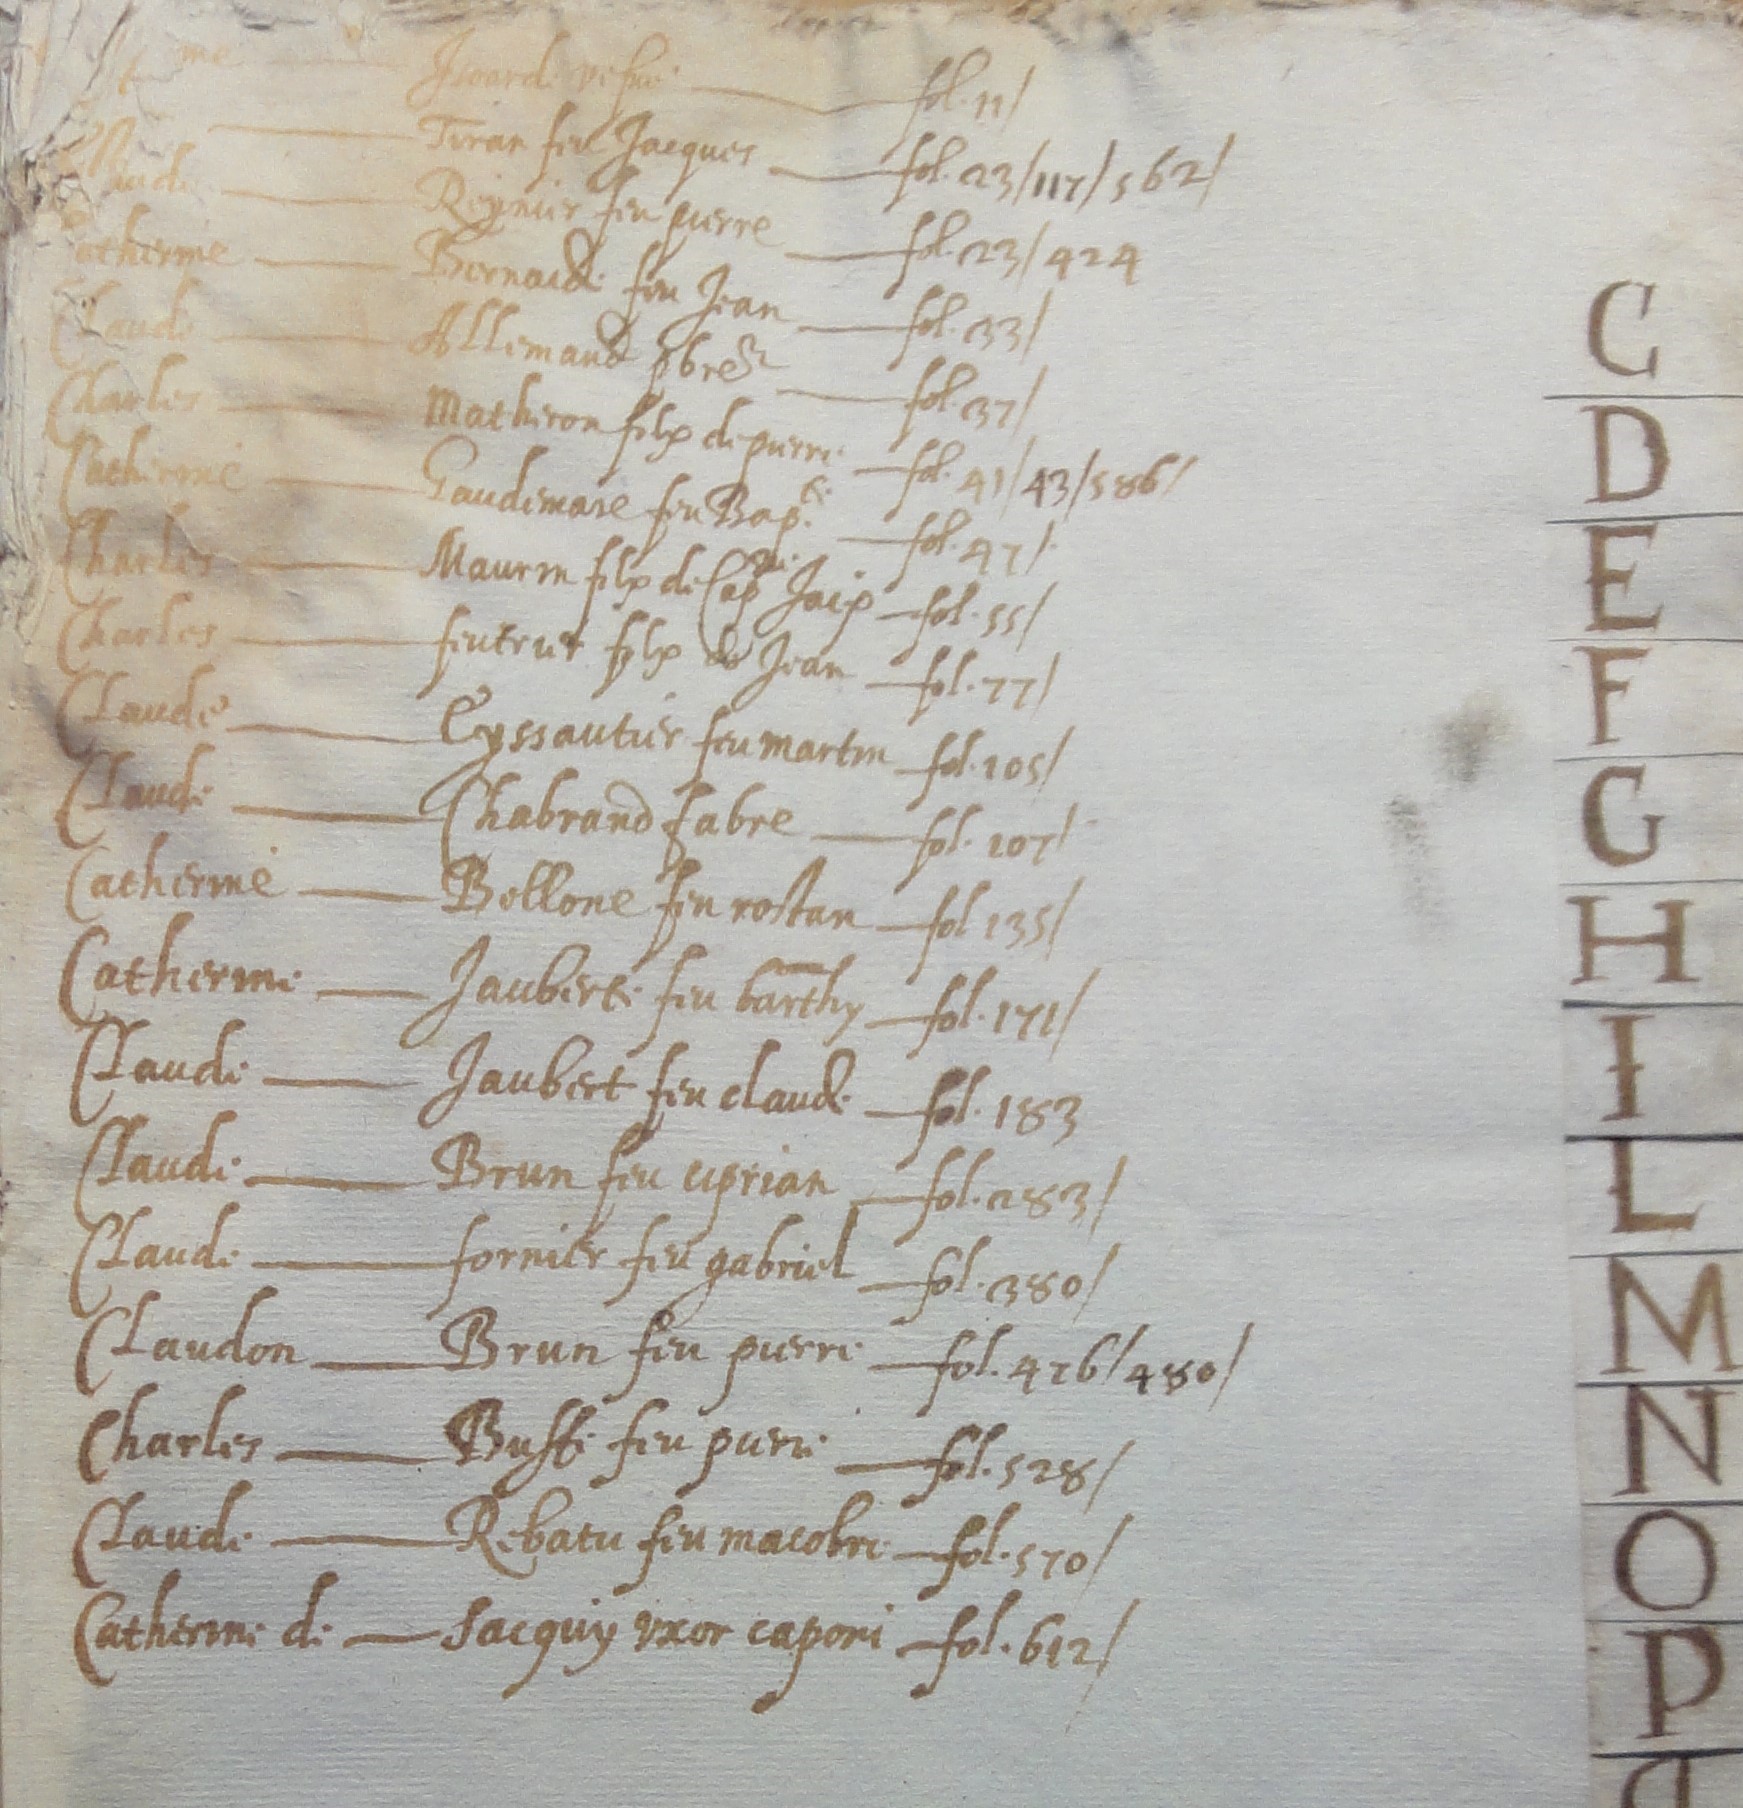 Isoarde vefue fol. 11/
Tiran feu Jacques fol. 23/117/562/
Claude Reynier feu pierre fol. 23/424
Catherine Bernarde feu Jean fol. 33/
Claude Allemand pbre fol. 37/
Charles Matheron filz de pierre fol. 41/43/586/
Catherine Gaudemare feu Bap.te fol. 47/
Charles Maurin filz de Cap.ne Jacq fol. 55/
Charles feutrier filz de Jean fol. 77/
Claude Eyssautier feu martin fol. 105/
Claude Chabrand fabre fol. 107/
Catherine Bellone feu rostan fol 135/
Catherine Jauberte feu barthy fol. 171/
Claude Jaubert feu claude fol. 183
Claude Brun feu ciprian fol. 283/
Claude fornier feu gabriel fol. 380/
Claudon Brun feu pierre fol. 476/480/
Charles feu pierre fol. 528/
Claude Rebatu feu macobre fol. 570/
Catherine de Jacquiy uxor capori fol. 612/
C
D
E
F
G
H
I
L
M
N
O
P